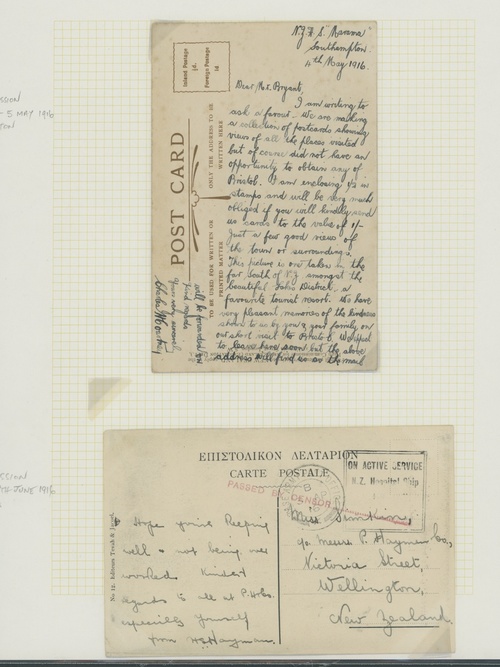 5 MAY 1916
N.Z.H.S "Marama"
Southampton.
4th May 1916.
Dear Mrs. Bryant,
I am writing to
ask a favour. We are making
a collection of postcards showing
views of all the places visited
but of course did not have an
opportunity to obtain any of
Bristol. I am enclosing 1/2 in
stamps and will be very much
obliged if you will kindly send
us cards to the value of 1/-
Just a few good views of
the town or surroundings.
This picture is one taken in the
far South of N.Z. amongst the
beautiful Lakes District, a
favourite tourist resort. We have
very pleasant memories of the kindness
shown to us by you & your family on
our short visit to Bristol. We expect
to leave here soon but the above
address will find us as the mail
will be forwarded on
kind regards
Yours very sincerely
Inland Postage
½d.
Foreign Postage
1d.
POST CARD
ONLY THE ADDRESS TO BE
WRITTEN HERE
TO BE USED FOR WRITTEN OR
PRINTED MATTER
JUNE 1916
ΕΠΙΣΤΟΛΙΚΟΝ ΔΕΛΤΑΡΙΟΝ
CARTE POSTALE
PASSED BY CENSOR
ON ACTIVE SERVICE
N.Z. Hospital Ship
Hope you're keeping
well & not being over
worked. Kindest
regards to all at P.H. & Co.
especially yourself
from Hayman.
Miss Simkin,
c/o Messrs P. Hayman & Co.,
Victoria Street,
Wellington,
New Zealand.